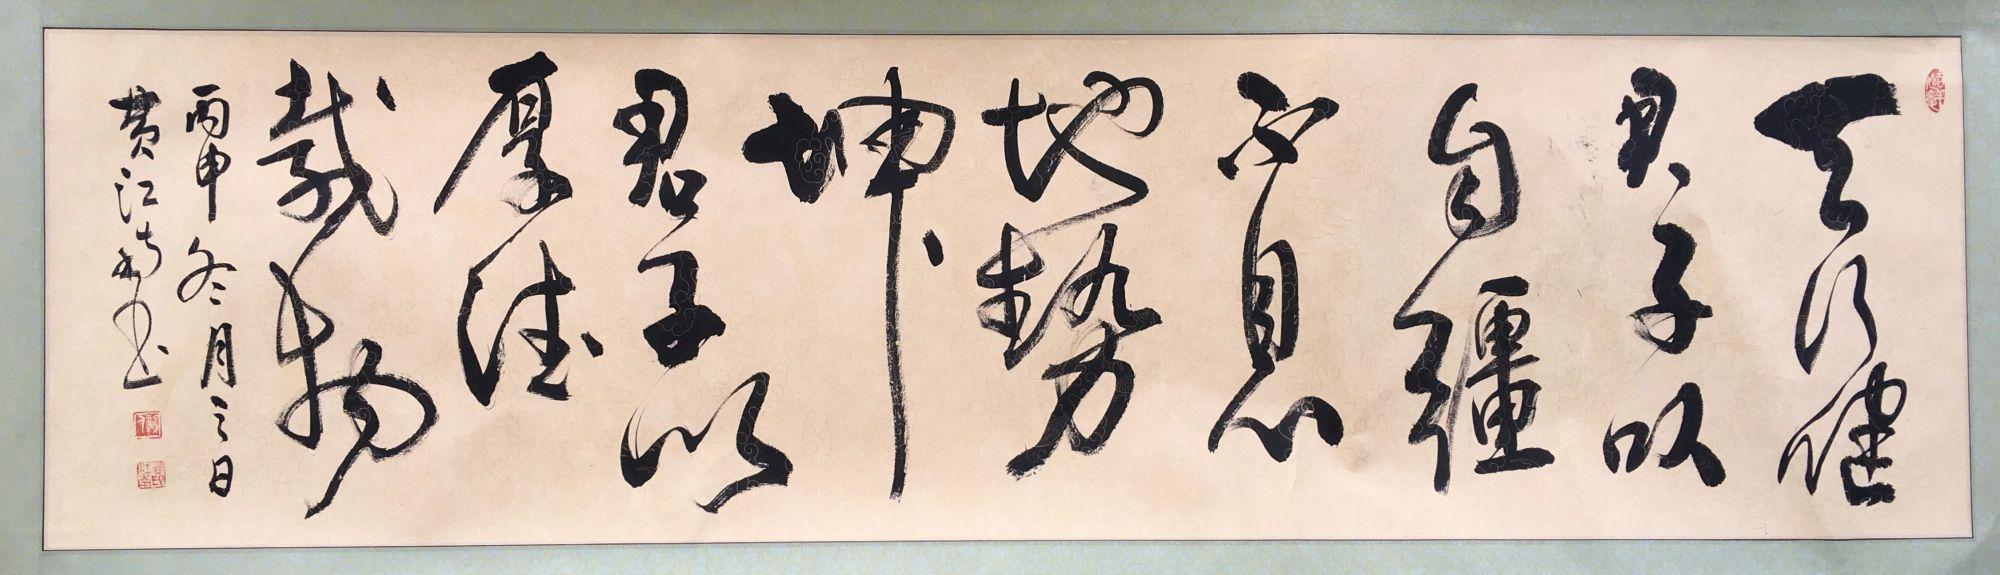 天行健
君子以
自疆
不息
地勢
坤
君子以
厚德
載物
丙申冬月三日
黄江南书